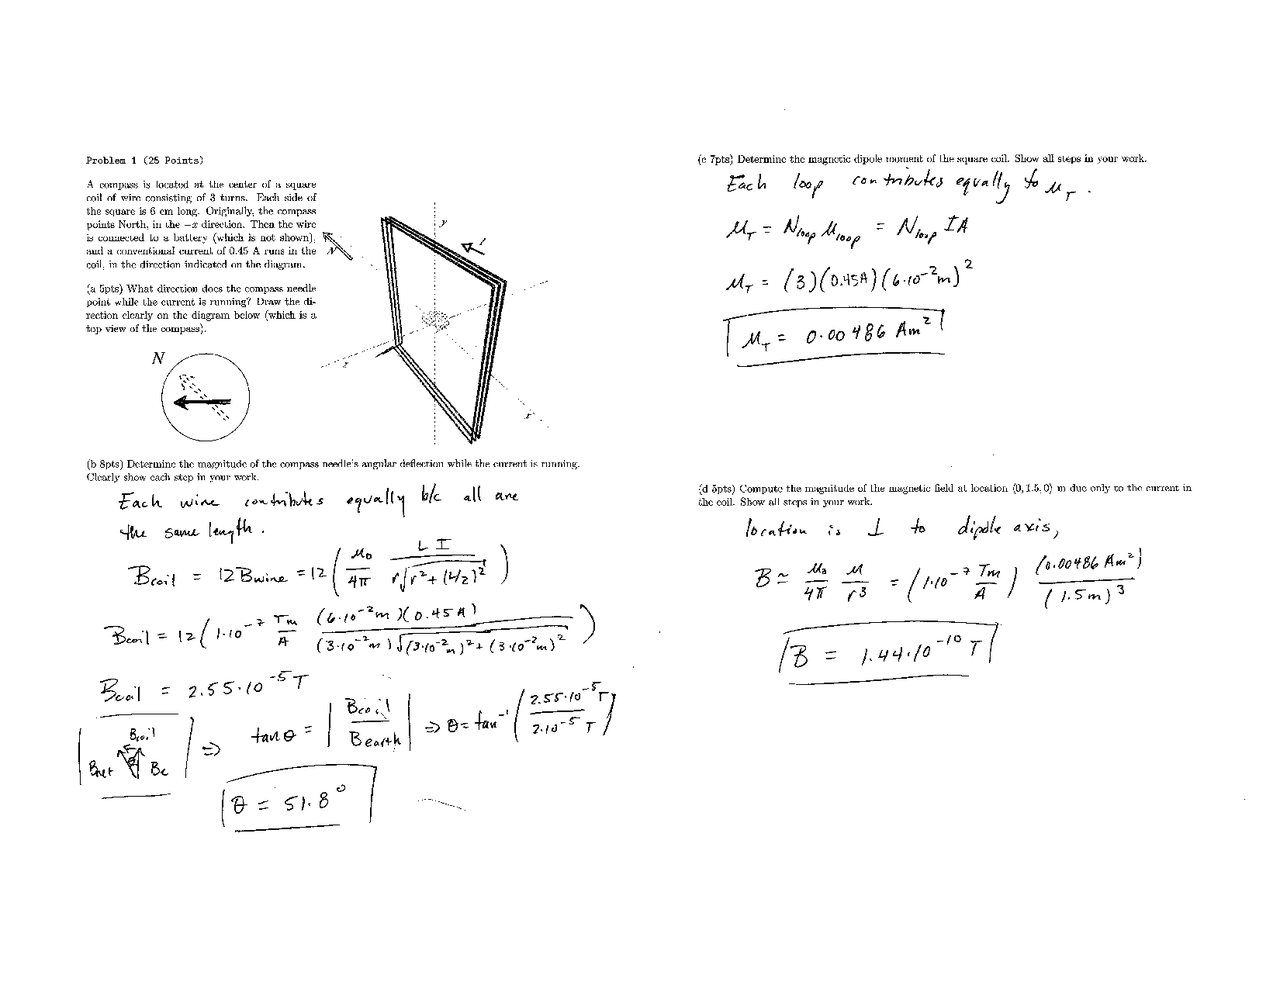 Problem 1 (25 Points)
A compass is located at the center of a square
coil of wire consisting of 3 turns. Each side of
the square is 6 cm long. Originally, the compass
points North, in the −x direction. Then the wire
is connected to a battery (which is not shown),
and a conventional current of 0.45 A runs in the
coil, in the direction indicated on the diagram.
(a 5pts) What direction does the compass needle
point while the current is running? Draw the di-
rection clearly on the diagram below (which is a
top view of the compass).
N
N
y
I
z
x
(b 8pts) Determine the magnitude of the compass needle's angular deflection while the current is running.
Clearly show each step in your work.
Each wire contributes equally b/c all are
the same length.
B_coil = 12 B_wire = 12 ( μ₀/4π LI / r√(r² + (L/2)²) )
B_coil = 12 ( 1·10⁻⁷ Tm/A (6·10⁻²m)(0.45A) / (3·10⁻²m)√((3·10⁻²m)² + (3·10⁻²m)²) )
B_coil = 2.55·10⁻⁵ T
B_coil
B_net θ B_e
⇒ tanθ = | B_coil / B_earth | ⇒ θ = tan⁻¹ ( 2.55·10⁻⁵ T / 2·10⁻⁵ T )
θ = 51.8°
(c 7pts) Determine the magnetic dipole moment of the square coil. Show all steps in your work.
Each loop contributes equally to μ_T.
μ_T = N_loop μ_loop = N_loop IA
μ_T = (3)(0.45A)(6·10⁻²m)²
μ_T = 0.00486 Am²
(d 5pts) Compute the magnitude of the magnetic field at location ⟨0, 1.5, 0⟩ m due only to the current in
the coil. Show all steps in your work.
location is ⊥ to dipole axis,
B ≃ μ₀/4π μ/r³ = (1·10⁻⁷ Tm/A) (0.00486 Am²)/(1.5m)³
B = 1.44·10⁻¹⁰ T